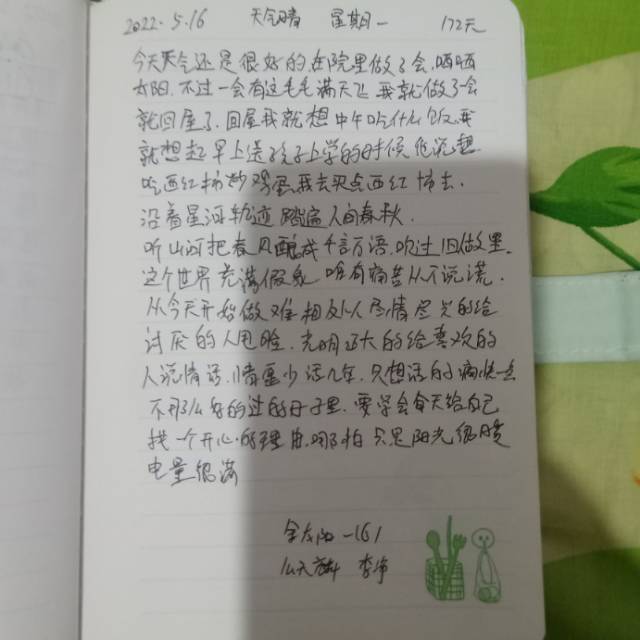 2022.5.16 天气晴 星期一 172天
今天天气还是很好的,在院里做了会,晒晒
太阳,不过一会有这毛毛满天飞,我就做了会
就回屋了,回屋我就想中午吃什么饭,我
就想起早上送孩子上学的时候他说想
吃西红柿炒鸡蛋,我去买点西红柿去.
沿着星河轨迹 踏遍人间春秋.
听山河把春风酿成千言万语,吹过旧做里.
这个世界充满假象 唯有痛苦从不说谎.
从今天开始做难相处人 尽情尽兴的给
讨厌的人甩脸,光明正大的给喜欢的
人说情话,情愿少活几年,只想活的痛快一点
不那么好的过的日子里,要学会每天给自己
找一个开心的理由,哪怕只是阳光很暖
电量很满